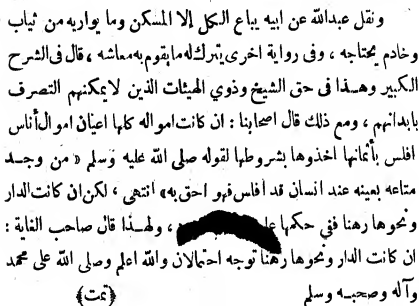 ونقل عبدالله عن ابيه يباع الكل إلا المسكن وما يواريه من ثياب
وخادم يحتاجه ، وفى رواية اخرى يترك له ما يقوم به معاشه ، قال فى الشرح
الكبير وهــذا فى حق الشيخ وذوي الهيئات الذين لايمكنهم التصرف
بابدانهم ، ومع ذلك قال اصحابنا : ان كانت امواله كلها اعيان اموال أناس
افلس بأثمانها اخذوها بشروطها لقوله صلى الله عليه وسلم « من وجــد
متاعه بعينه عند انسان قد أفلس فهو احق به» انتهى ، لكن ان كانت الدار
ونحوها رهنا ففي حكمها ، ولهــذا قال صاحب الغاية :
ان كانت الدار ونحوها رهنا توجه احتمالان والله اعلم وصلى الله على محمد
وآله وصحبــه وسلم ﴿تمت﴾